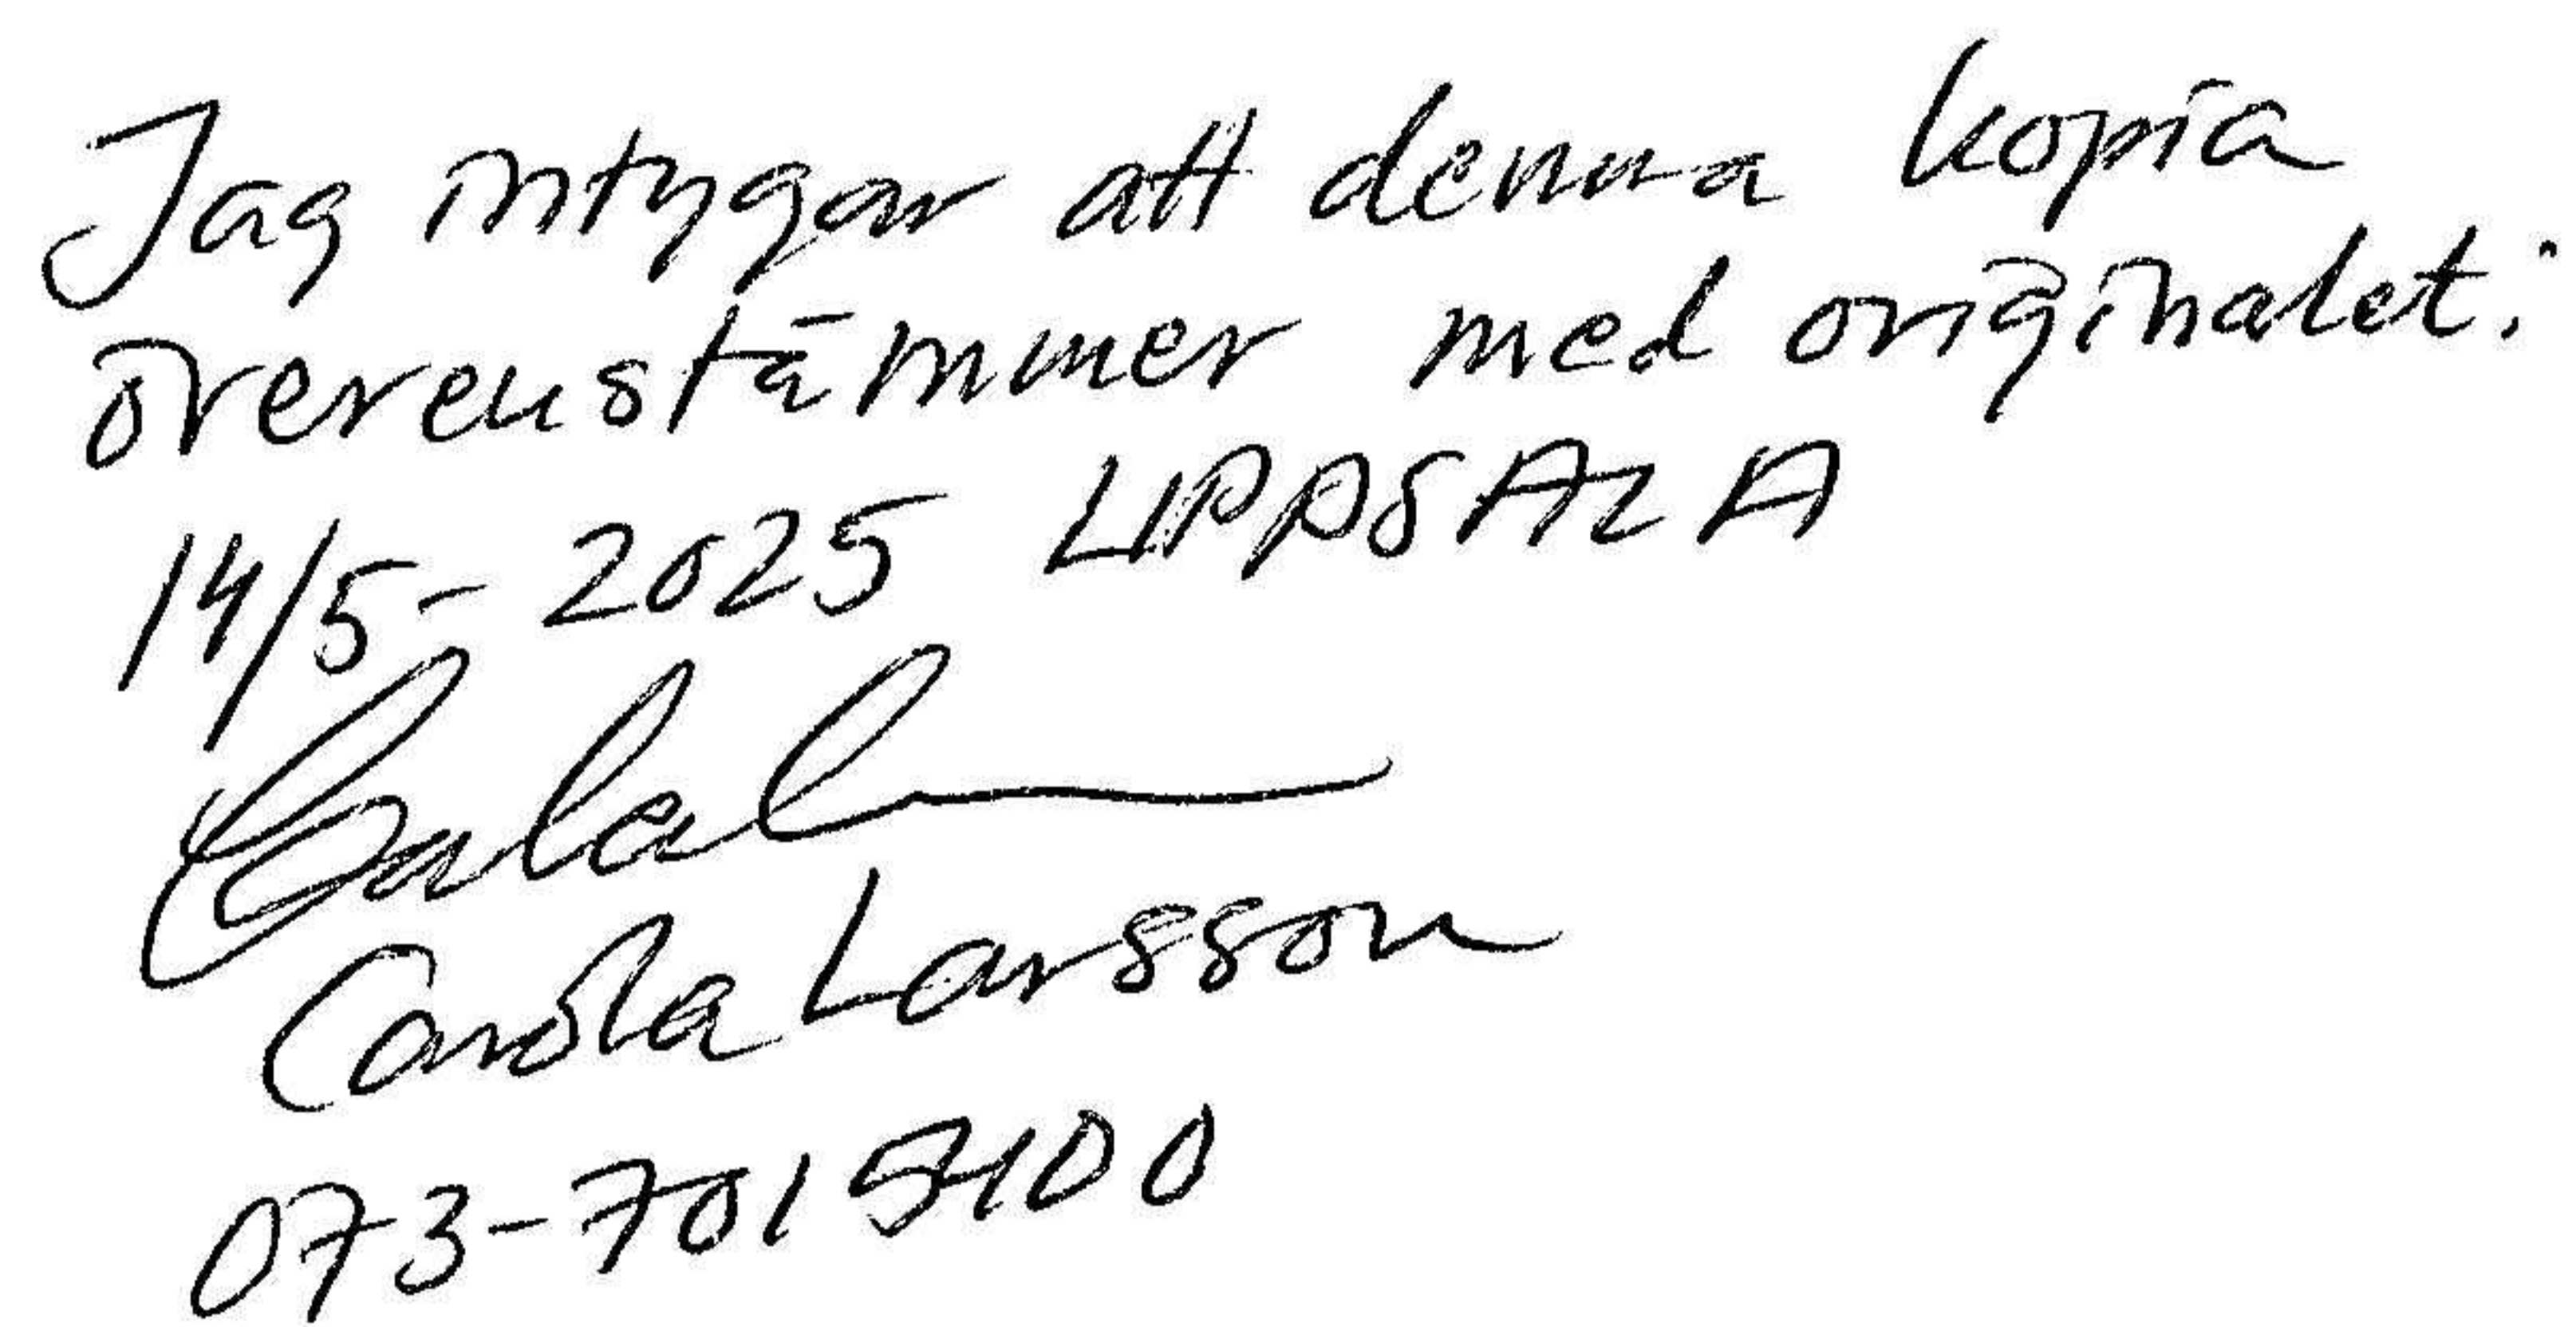 Jag intygar att denna kopia
överensstämmer med originalet.
14/5-2025 UPPSALA
Carola Larsson
073-7015400